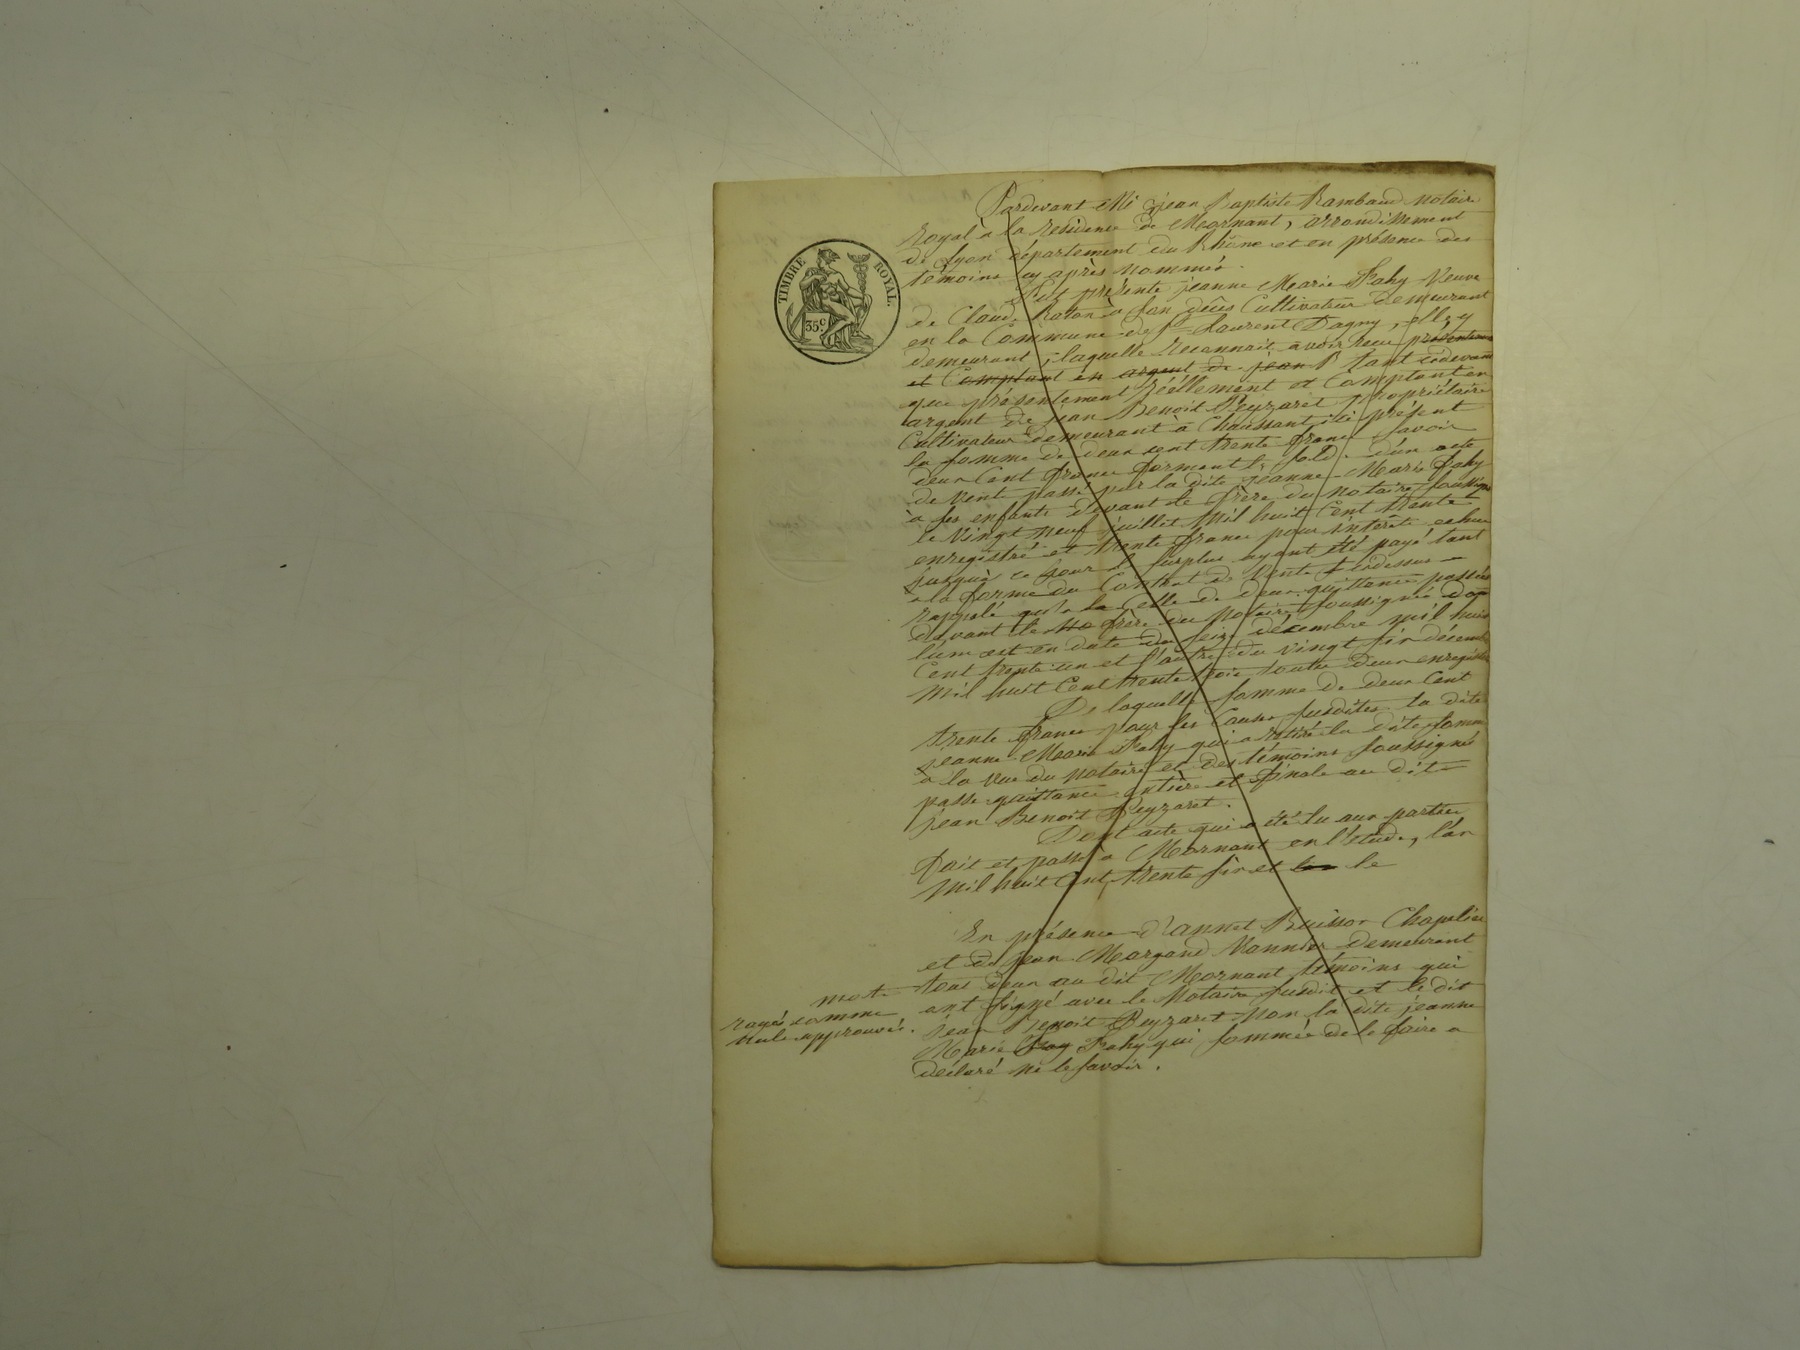 TIMBRE ROYAL.
35c.
Pardevant Me jean Baptiste Rambaud notaire
royal à la résidence de Mornant, arrondissement
de Lyon département du Rhône et en présence des
témoins cy après nommés.
Fut présente jeanne Marie Fahy Veuve
de Claude à son décès Cultivateur demeurant
en la Commune de St Laurent Dagny, elle y
demeurant, laquelle reconnait avoir reçu présentement
et Comptant en argent de jean B tant cidevant
que présentement réellement et Comptant en
argent de jean Benoit Peyzaret propriétaire
Cultivateur demeurant à Chaussant ici présent
la somme de deux cent trente franc savoir
deux Cent franc formant le solde d'un acte
de vent passé par la dite jeanne Marie Fahy
à ses enfants devant le frère du notaire soussigné
le vingt neuf juillet mil huit Cent trente
enregistré et trente franc pour intérêts echus
jusqu'à ce jour le surplus ayant été payé tant
a la forme du Contrat de Vente cidessus
rappelé qu'a la Celle de deux quittances passées
devant le frère du Notaire soussigné dont
l'une est en date du seize décembre mil huit
Cent trente un et l'autre du vingt six décembre
mil huit Cent trente trois toutes deux enregistrées
De laquelle somme de deux Cent
trente franc pour les Causes susdites la dite
jeanne Marie Fahy qui a retiré la dite somme
a la vue du notaire et des témoins soussignés
passe quittance entière et finale au dit
jean Benoit Peyzaret.
Dont acte qui a été lu aux parties
Fait et passé a Mornant en l'étude, l'an
mil huit Cent trente six et le
En présence d'annet Buisson Chapelier
et de jean Margand Vannier demeurant
tous deux au dit Mornant témoins qui
ont signé avec le Notaire susdit et le dit
jean Benoit Peyzaret non la dite jeanne
Marie Fahy qui sommée de le faire a
déclaré ne le savoir.
mots
rayés comme
nuls approuvés.